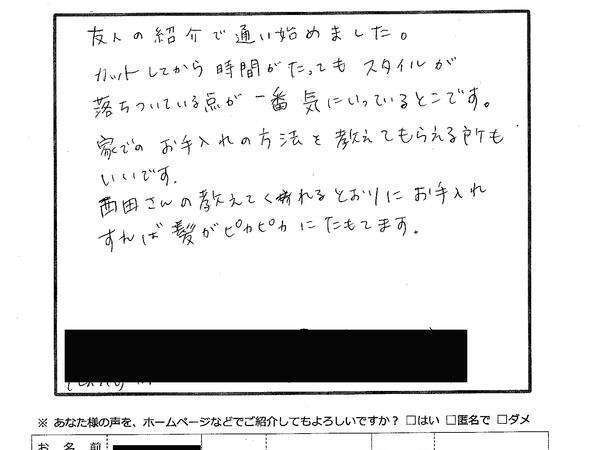 友人の紹介で通い始めました。
カットしてから時間がたってもスタイルが
落ちついている点が一番気にいっているとこです。
家でのお手入れの方法を教えてもらえる所も
いいです.
西田さんの教えてくれるとおりにお手入れ
すれば髪がピカピカにたもてます.
※ あなた様の声を、ホームページなどでご紹介してもよろしいですか？ □はい □匿名で □ダメ
お 名 前